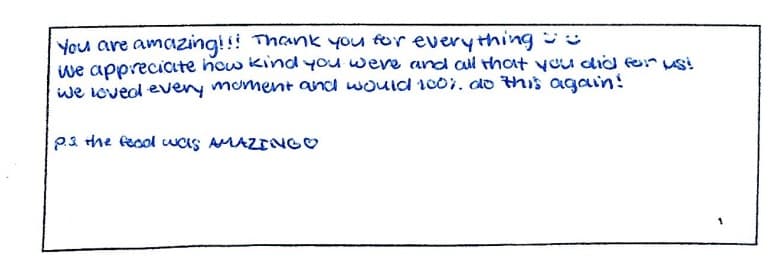 You are amazing!!! Thank you for everything ü ü
We appreciate how kind you were and all that you did for us!
We loved every moment and would 100%. do this again!
p.s the food was AMAZING♡